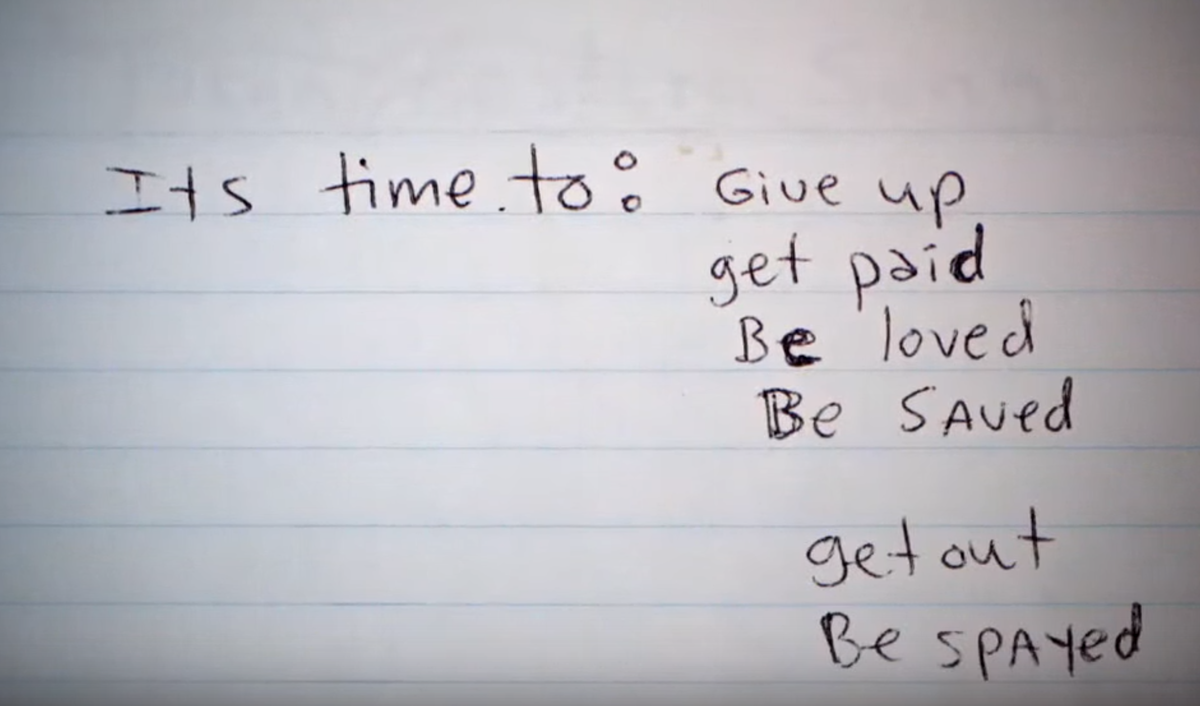 Its time to: Give up
get paid
Be loved
Be SAved
get out
Be spAyed